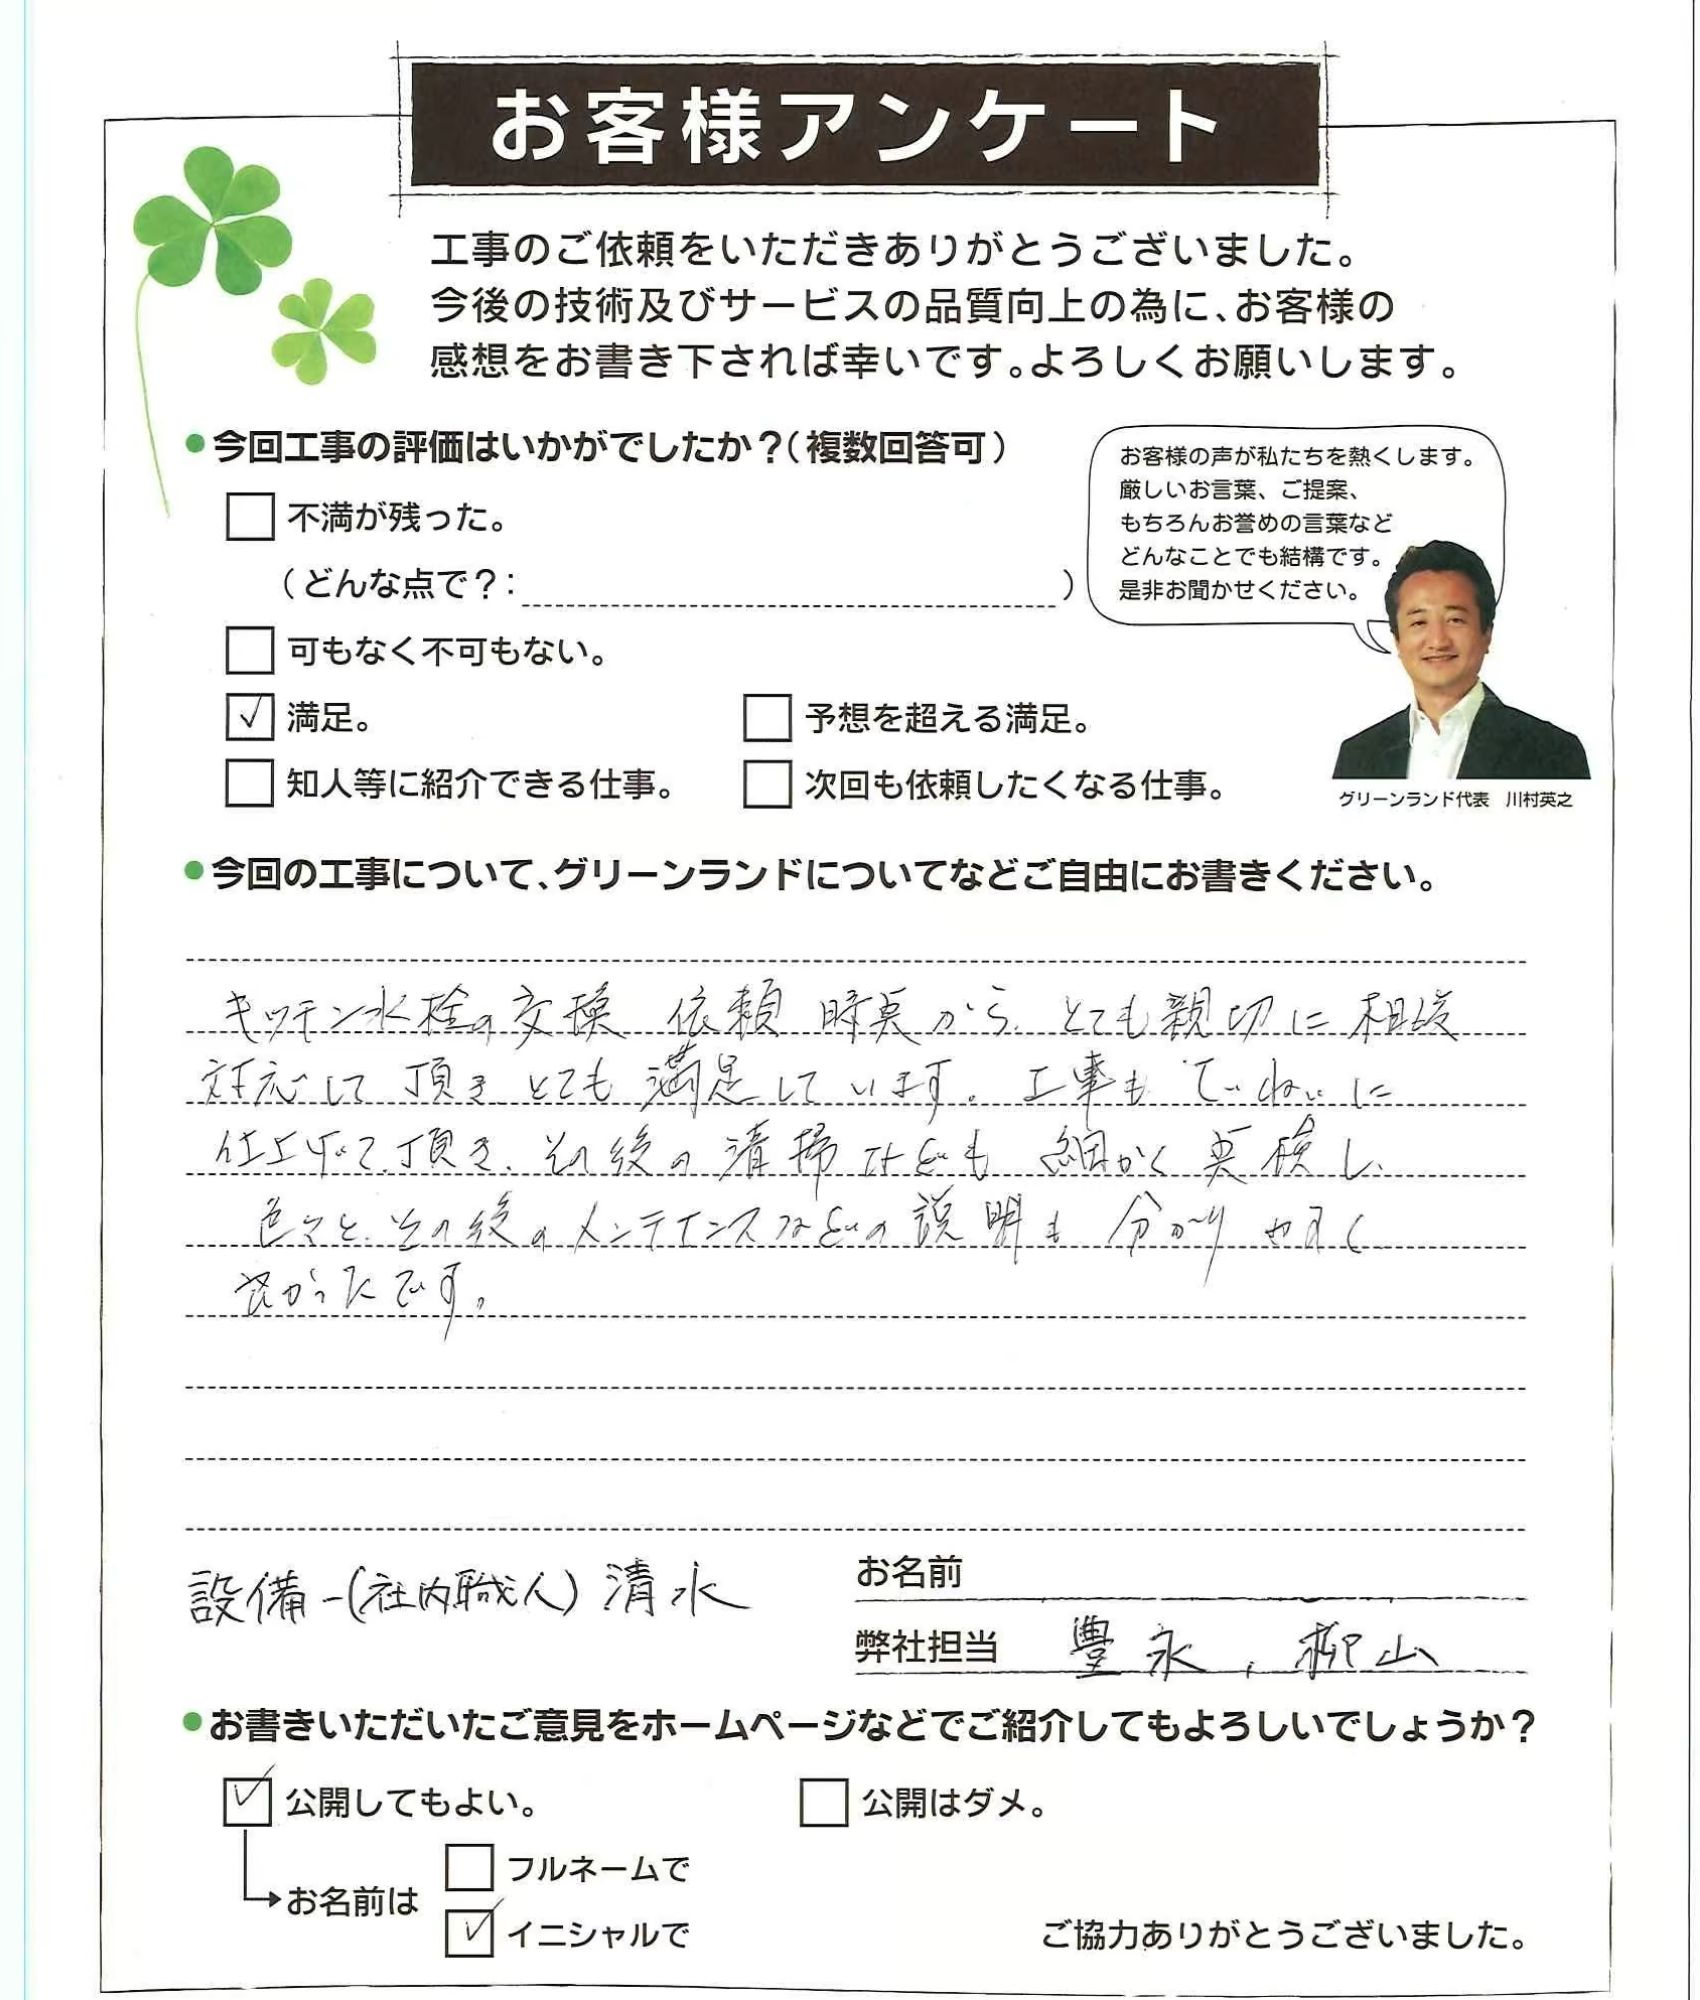 お客様アンケート
工事のご依頼をいただきありがとうございました。
今後の技術及びサービスの品質向上の為に、お客様の
感想をお書き下されば幸いです。よろしくお願いします。
●今回工事の評価はいかがでしたか？（複数回答可）
不満が残った。
（どんな点で？：　）
可もなく不可もない。
✓ 満足。
予想を超える満足。
知人等に紹介できる仕事。
次回も依頼したくなる仕事。
お客様の声が私たちを熱くします。
厳しいお言葉、ご提案、
もちろんお誉めの言葉など
どんなことでも結構です。
是非お聞かせください。
グリーンランド代表　川村英之
●今回の工事について、グリーンランドについてなどご自由にお書きください。
キッチン水栓の交換 依頼 時点から、とても親切に相談
対応して頂きとても満足しています。工事もていねいに
仕上げて頂き、その後の清掃なども細かく点検し、
色々と、その後のメンテナンスなどの説明も分かりやすく
良かったです。
設備-(社内職人) 清水
お名前
弊社担当　豊永、柳山
●お書きいただいたご意見をホームページなどでご紹介してもよろしいでしょうか？
✓ 公開してもよい。
公開はダメ。
お名前は
フルネームで
✓ イニシャルで
ご協力ありがとうございました。